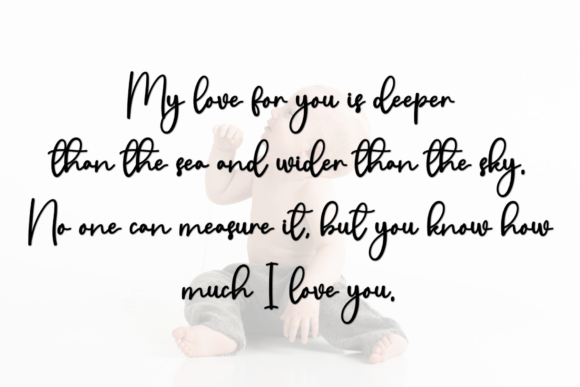 My love for you is deeper
than the sea and wider than the sky.
No one can measure it, but you know how
much I love you.